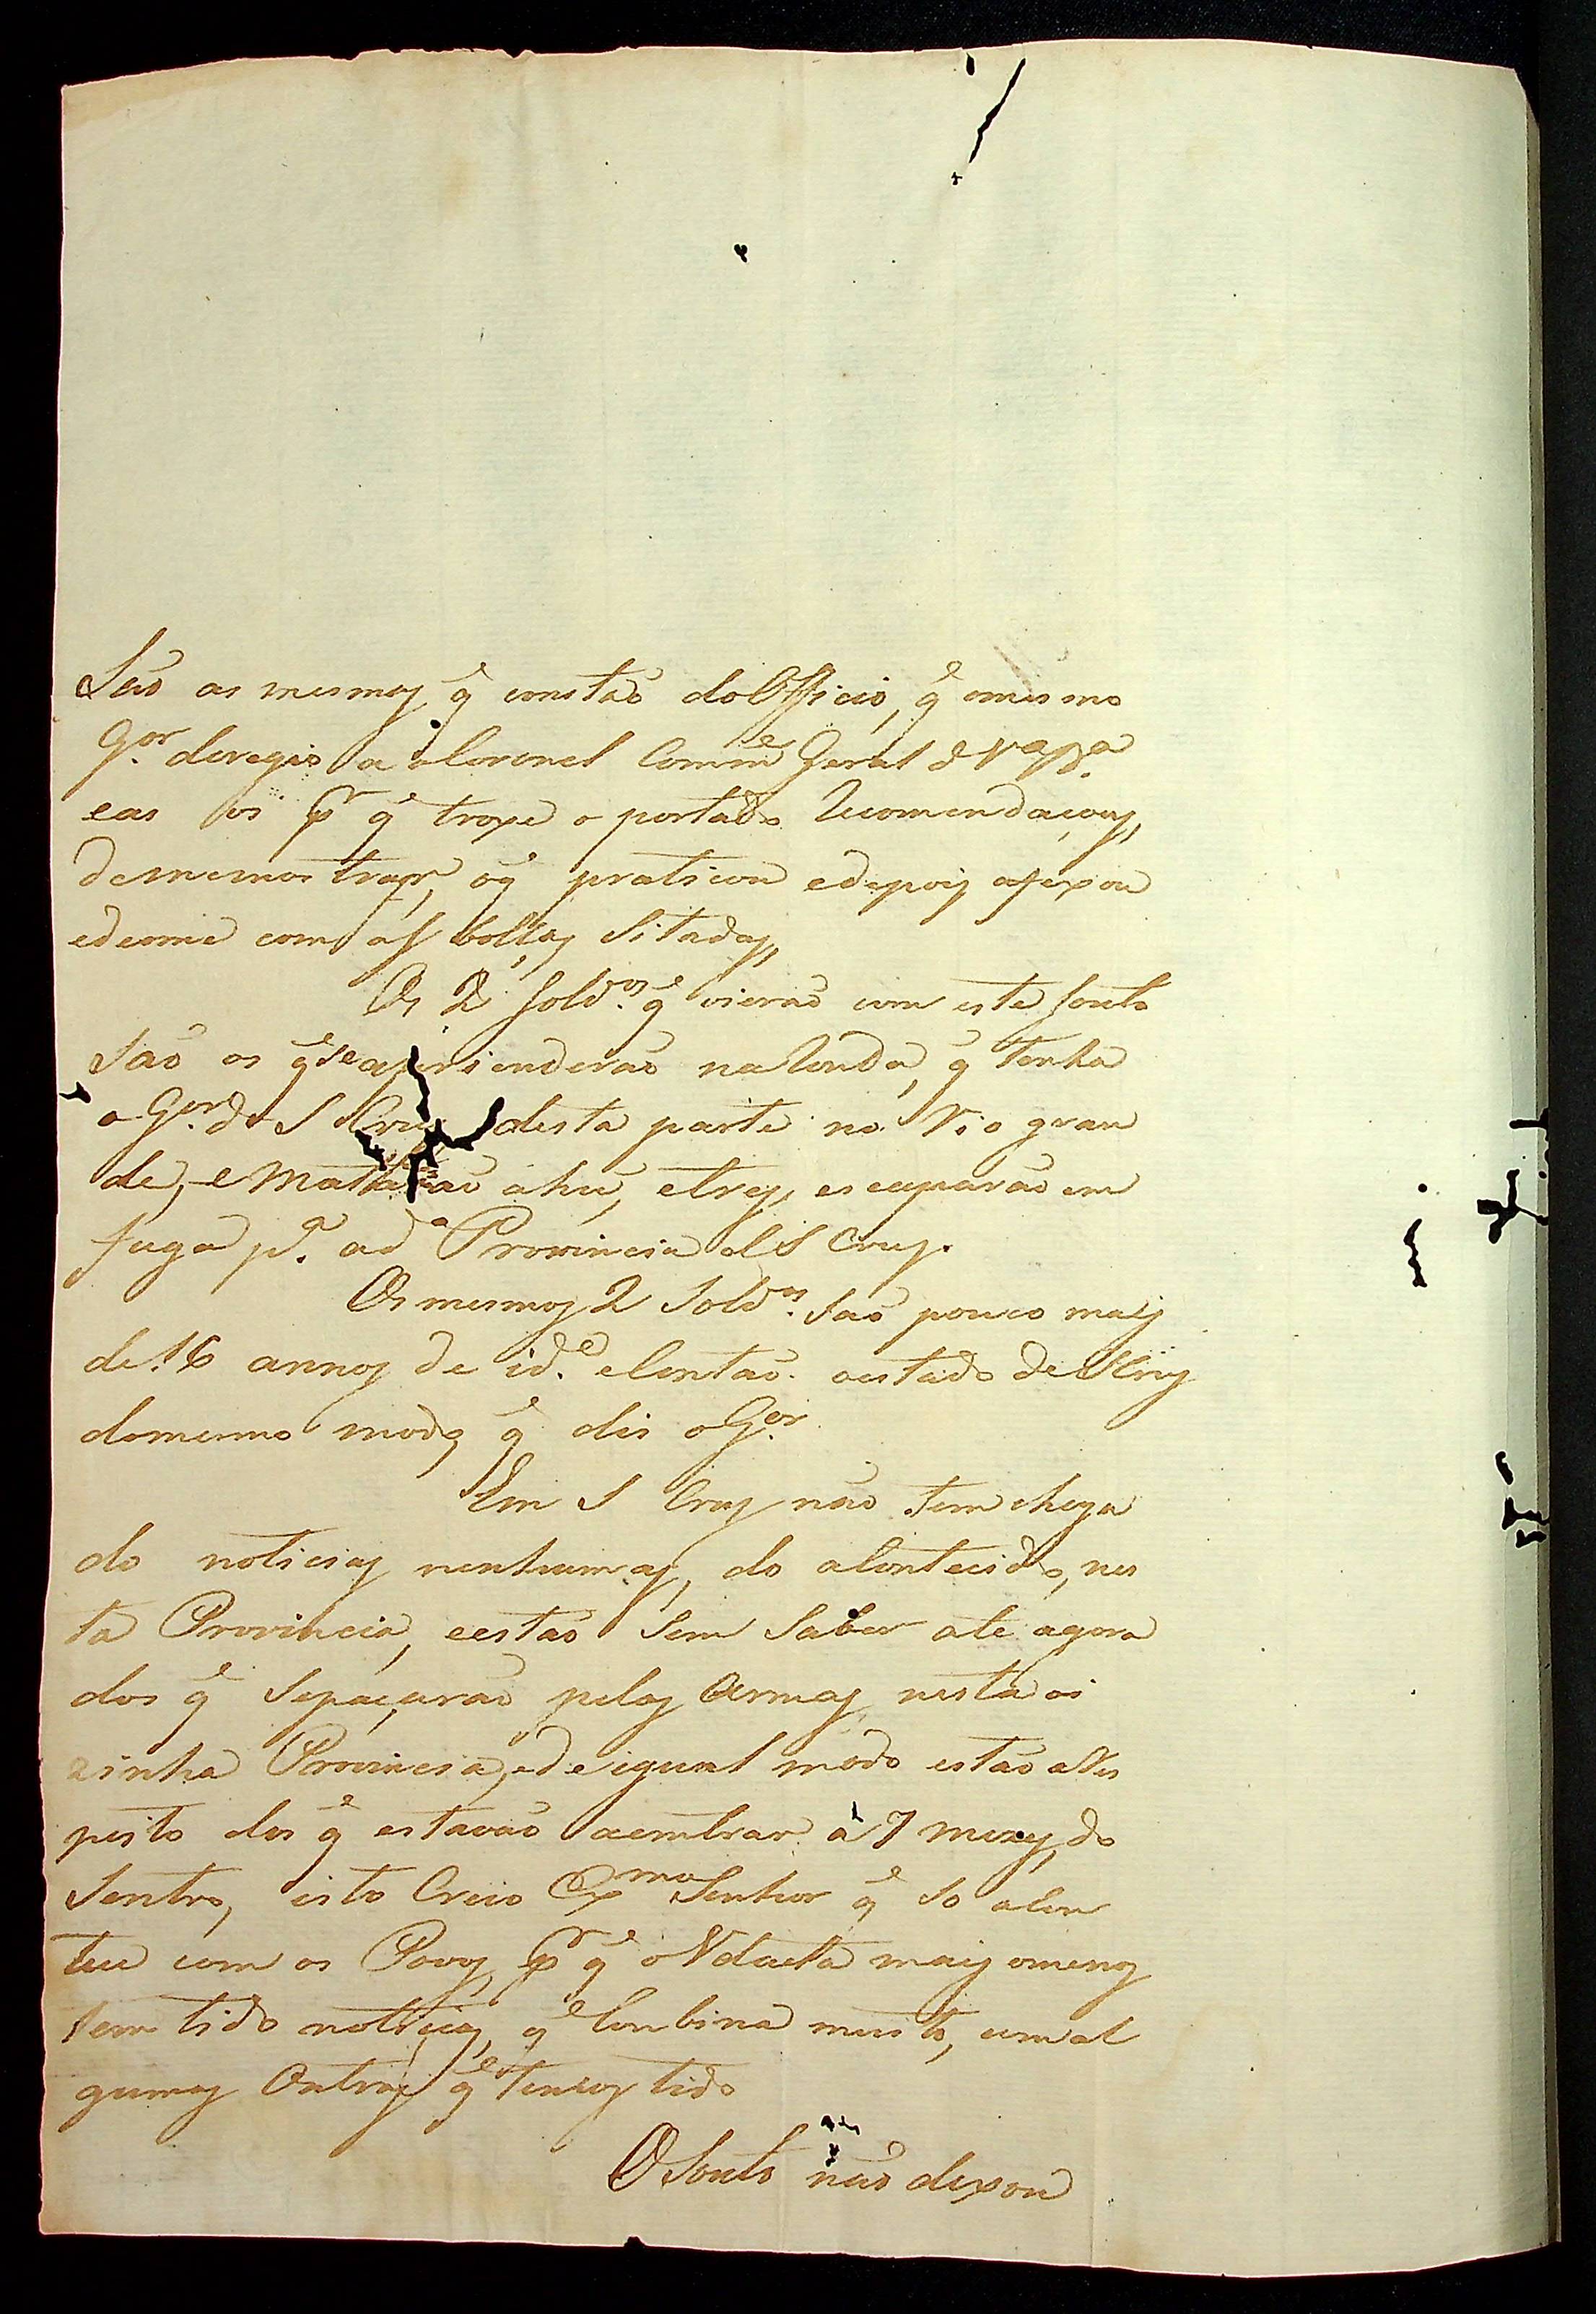 São as mesmas q̃ constão do Officio, q̃ omesmo
G.or deregio a o Coronel Comm.e Geral d V.a B.a
eas os pr q̃ troxe o portado Recomendaçoẽs,
dememostrar, oq̃ praticou edepois afexou
edeome com as bollas Sitadas,
Os 2 Sold.os q̃ vierão com este Souto
São os q̃ se aprienderão na Ronda, q̃ tenha
o G.or de S Cruz desta parte no Rio gran
de, e Mattarão áhú, etres, escaparão em
fuga p.a ad.a Provincia d S Cruz.
Os mesmos 2 Sold.os São pouco mais
de 16 annos de id.e eContão. oestado de
domesmo modo q̃ dis o G.or
Em S Cruz não tem chega
do noticias nenhumas, do aContecido, nes
ta Provincia, eestão Sem Saber ate agora
dos q̃ Sepaçarão pelas Armas, nesta vi
zinha Provincia, ede igual modo estão aRes
peito dos q̃ estavão aentrar à 7 mezes, do
Sentro, isto Creio Ex.mo Senhor q̃ So aCon
tece com os Povos, pr q̃ o Vdaeta mais omenos
tem tido noticias, q̃ Conbina muito, com al
gumas Outras q̃ temos tido
O Souto não dexou